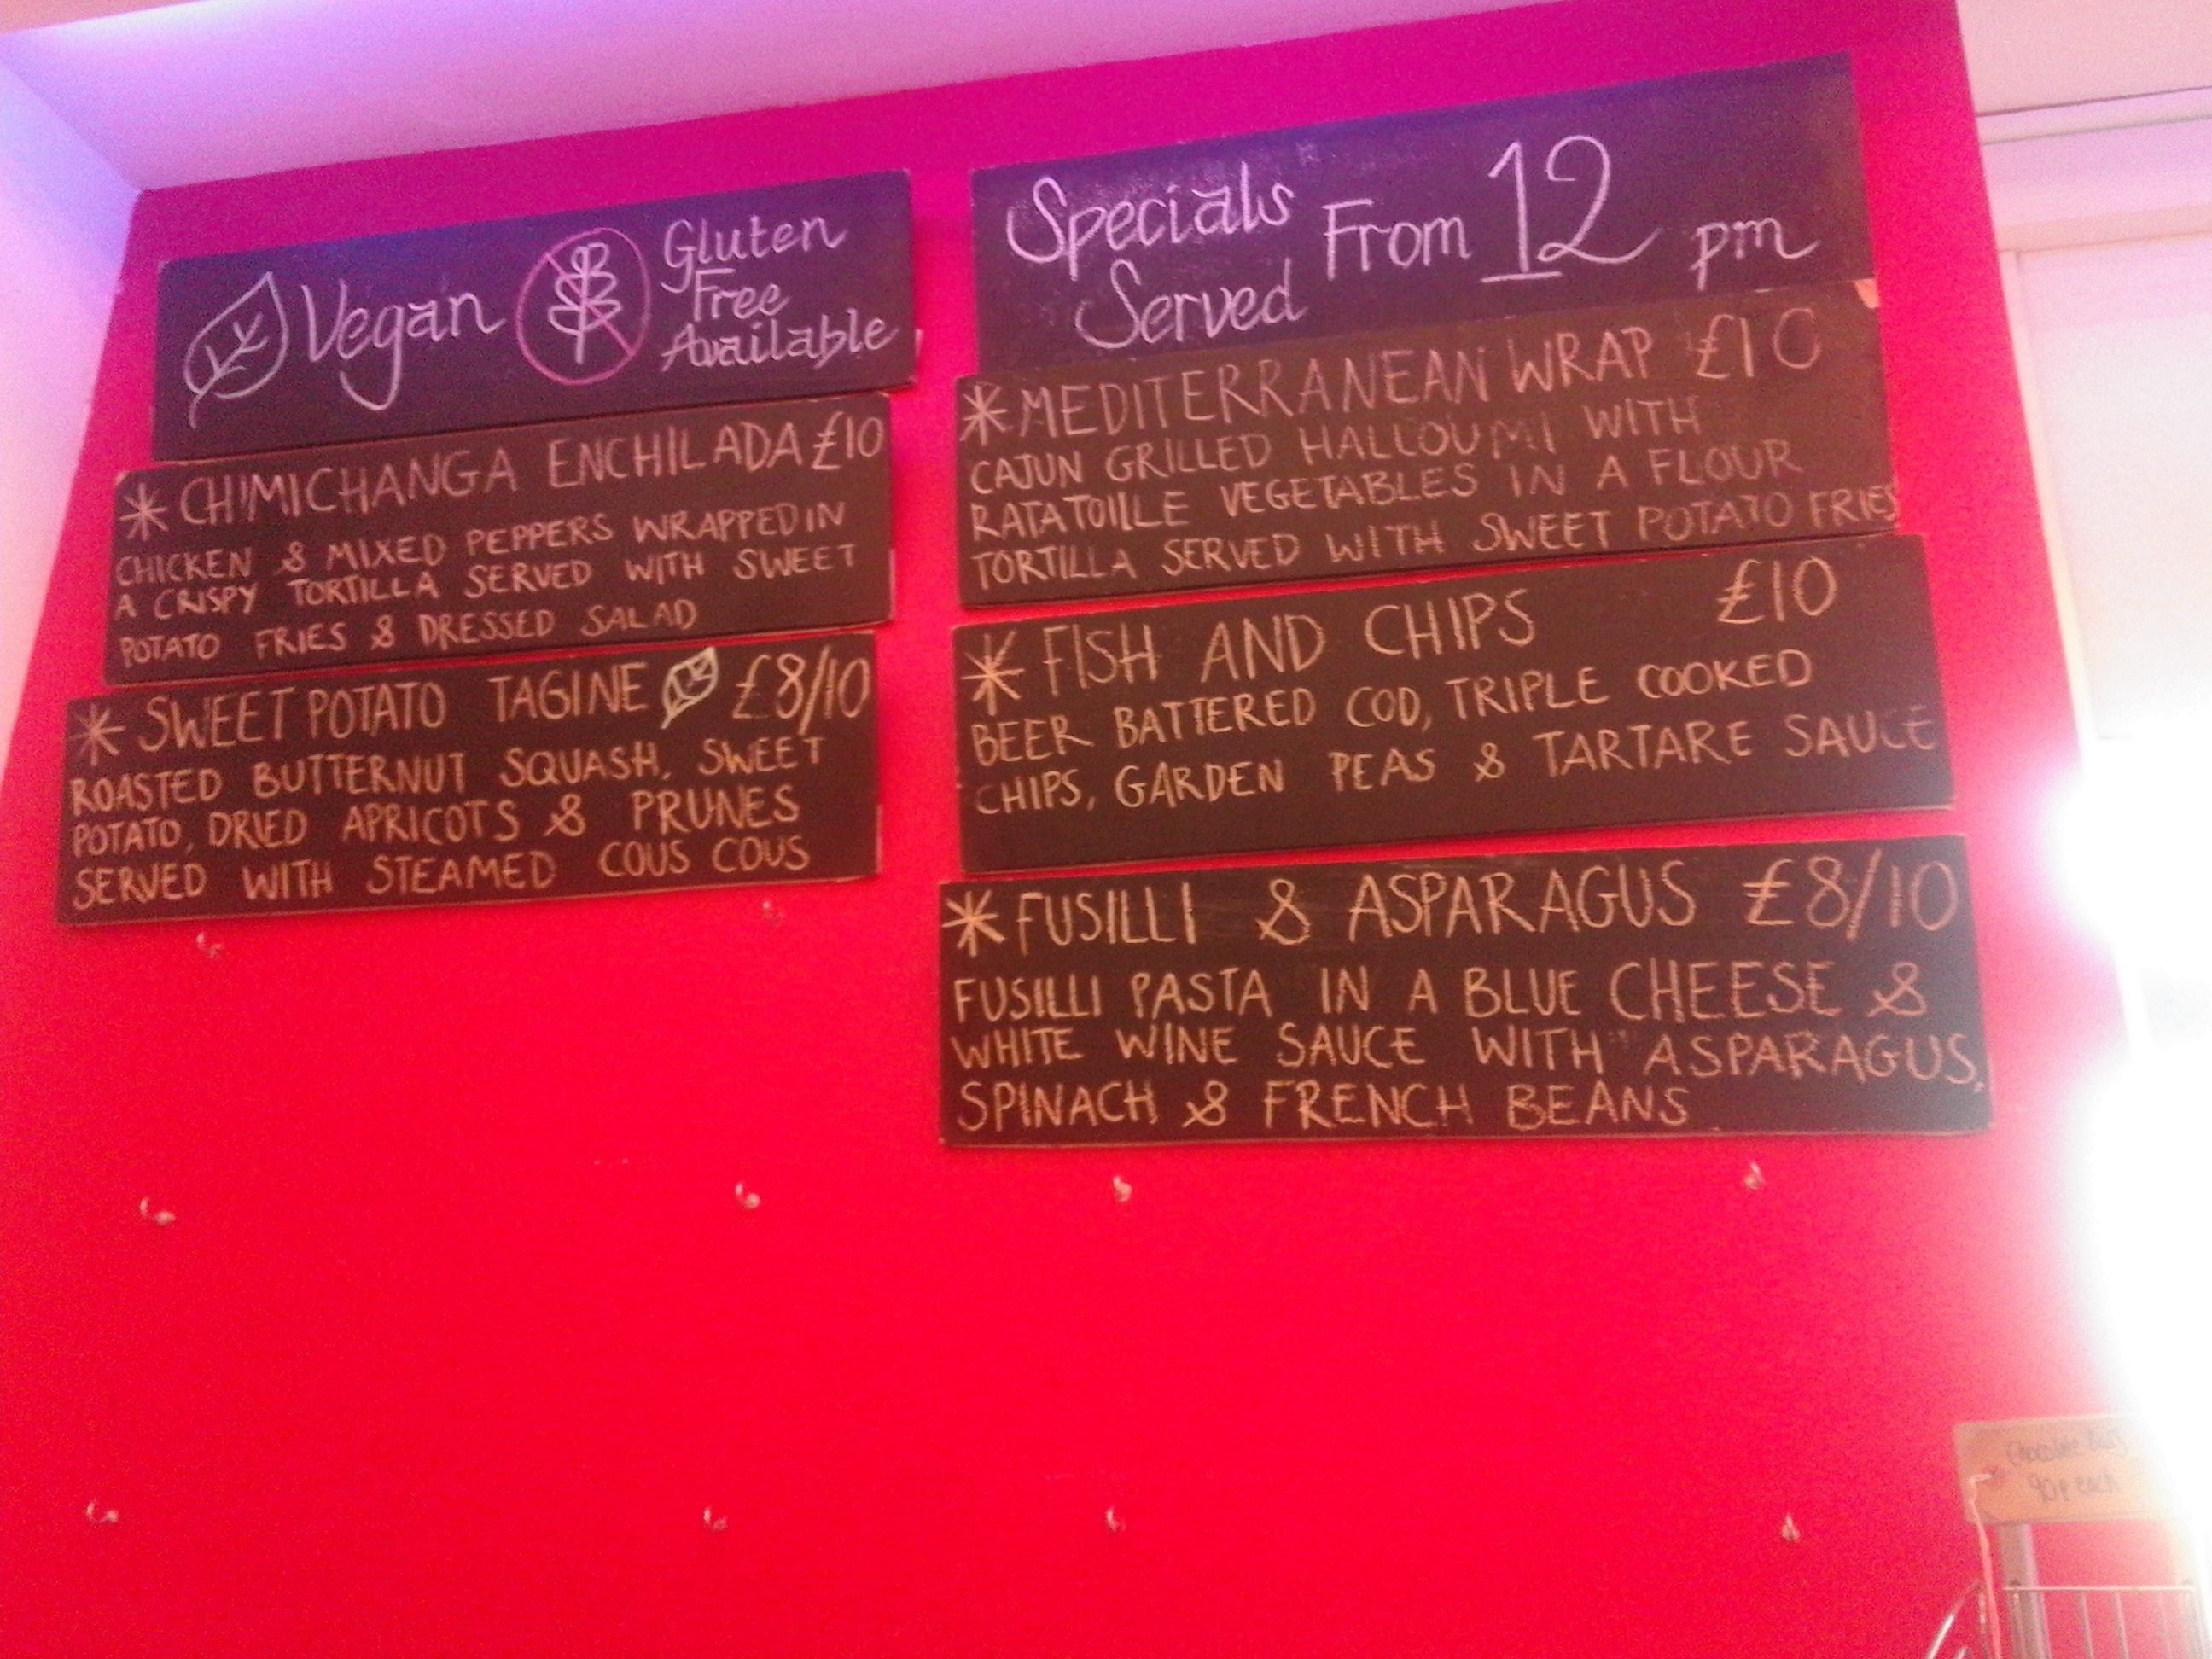 Vegan
Gluten
Free
Available
* CHIMICHANGA ENCHILADA £10
CHICKEN & MIXED PEPPERS WRAPPED IN
A CRISPY TORTILLA SERVED WITH SWEET
POTATO FRIES & DRESSED SALAD
* SWEET POTATO TAGINE £8/10
ROASTED BUTTERNUT SQUASH, SWEET
POTATO, DRIED APRICOTS & PRUNES
SERVED WITH STEAMED COUS COUS
Specials
Served From 12 pm
* MEDITERRANEAN WRAP £10
CAJUN GRILLED HALLOUMI WITH
RATATOILLE VEGETABLES IN A FLOUR
TORTILLA SERVED WITH SWEET POTATO FRIES
* FISH AND CHIPS £10
BEER BATTERED COD, TRIPLE COOKED
CHIPS, GARDEN PEAS & TARTARE SAUCE
* FUSILLI & ASPARAGUS £8/10
FUSILLI PASTA IN A BLUE CHEESE &
WHITE WINE SAUCE WITH ASPARAGUS,
SPINACH & FRENCH BEANS
Chocolate
90p each